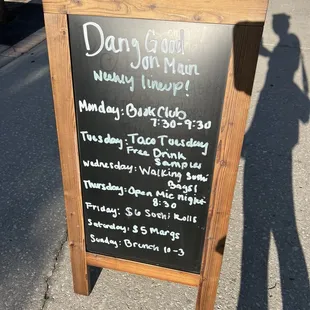 Dang Good
on Main
Weekly lineup!
Monday: Book Club
7:30-9:30
Tuesday: Taco Tuesday
Free Drink
Samples
Wednesday: Walking Sushi
Bags!
Thursday: Open Mic Night
8:30
Friday: $6 Sushi Rolls
Saturday: $5 Margs
Sunday: Brunch 10-3